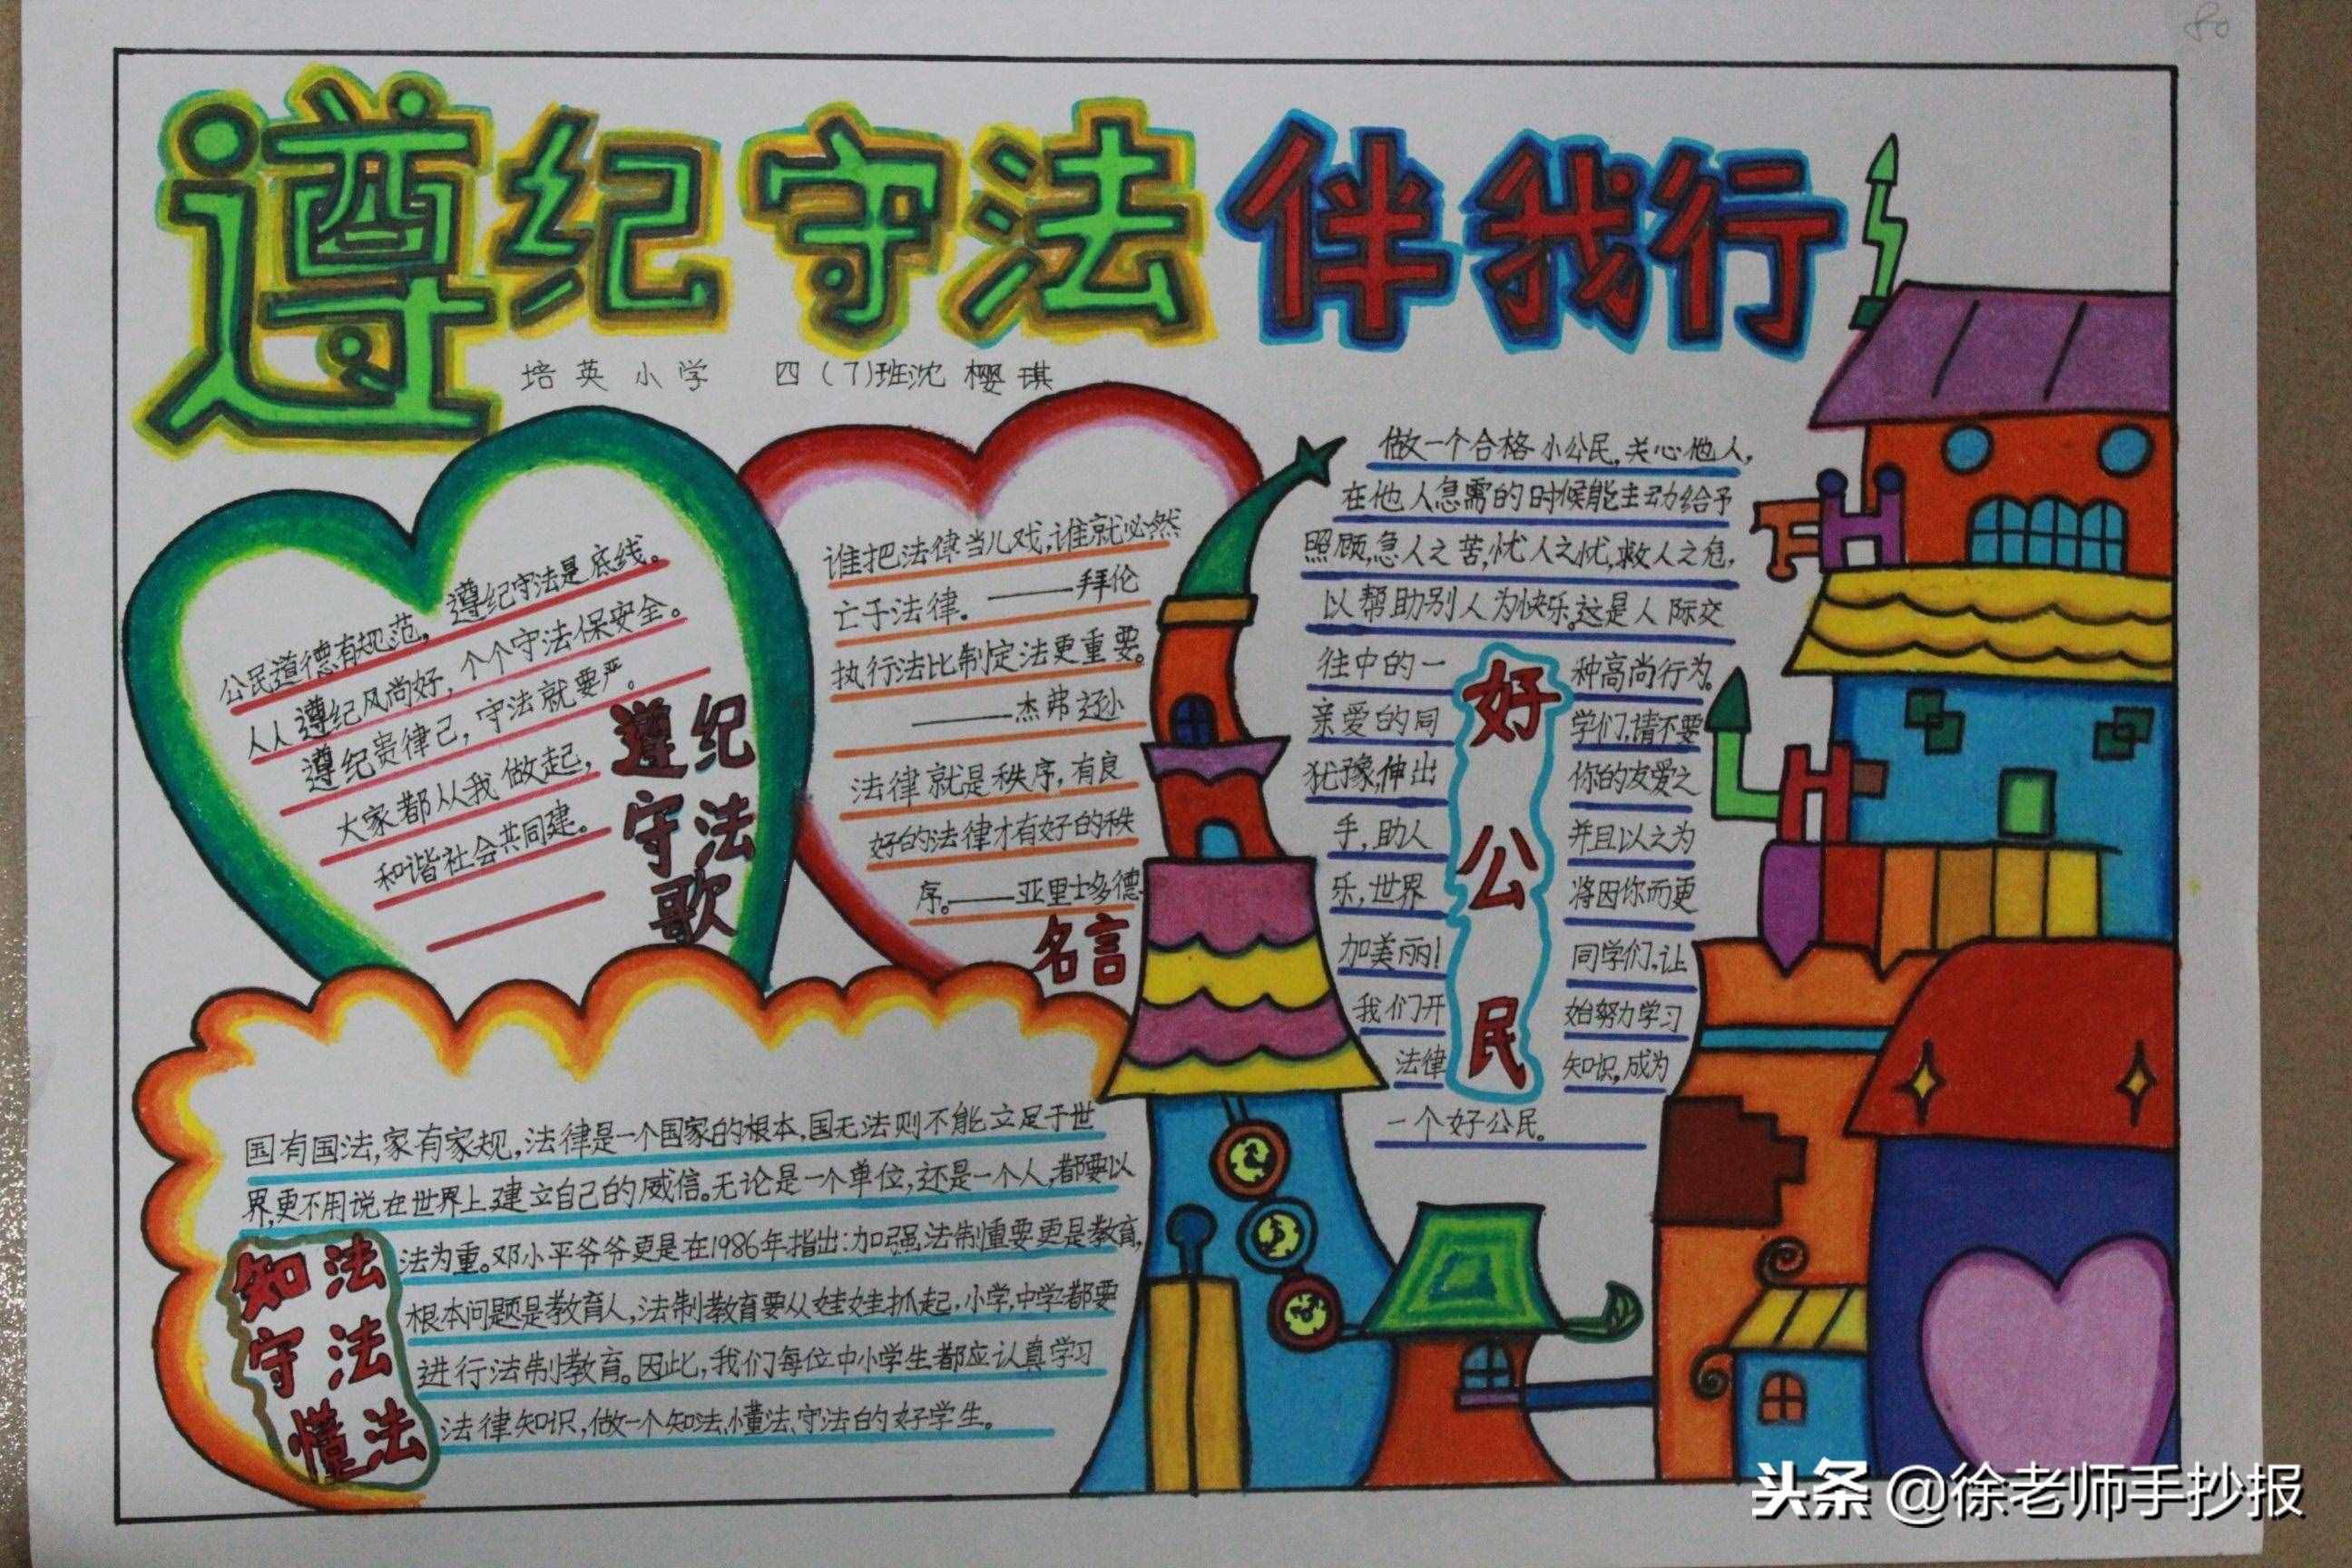 遵纪守法伴我行
培英小学 四(7)班沈樱琪
公民道德有规范，遵纪守法是底线。
人人遵纪风尚好，个个守法保安全。
遵纪贵律己，守法就要严。
大家都从我做起，
和谐社会共同建。
遵纪
守法
歌
谁把法律当儿戏，谁就必然
亡于法律。——拜伦
执行法比制定法更重要。
——杰弗逊
法律就是秩序，有良
好的法律才有好的秩
序。——亚里士多德
名言
做一个合格小公民，关心他人，
在他人急需的时候能主动给予
照顾，急人之苦，忧人之忧，救人之危，
以帮助别人为快乐。这是人际交
往中的一种高尚行为。
亲爱的同学们，请不要
犹豫，伸出你的友爱之
手，助人并且以之为
乐，世界将因你而更
加美丽！同学们，让
我们开始努力学习
法律知识，成为
一个好公民。
好公民
国有国法，家有家规，法律是一个国家的根本，国无法则不能立足于世
界，更不用说在世界上建立自己的威信。无论是一个单位，还是一个人，都要以
法为重。邓小平爷爷更是在1986年指出：加强法制重要更是教育，
根本问题是教育人，法制教育要从娃娃抓起，小学，中学都要
进行法制教育。因此，我们每位中小学生都应认真学习
法律知识，做一个知法、懂法、守法的好学生。
知法
守法
懂法
头条 @徐老师手抄报
80